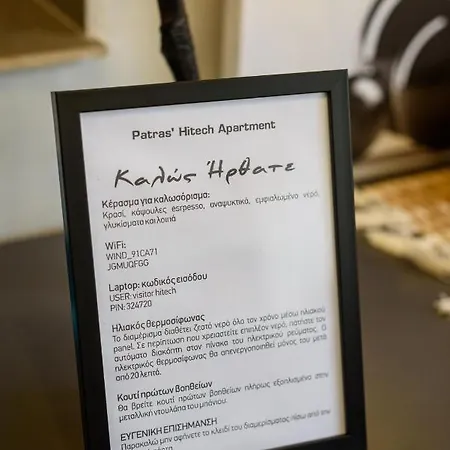 Patras' Hitech Apartment
Καλώς Ήρθατε
Κέρασμα για καλωσόρισμα:
Κρασί, κάψουλες esrpesso, αναψυκτικά, εμφιαλωμένο νερό,
γλυκίσματα και λοιπά
WiFi:
WIND_91CA71
JGMUQFGG
Laptop: κωδικός εισόδου
USER: visitor hitech
PIN: 324720
Ηλιακός θερμοσίφωνας
Το διαμέρισμα διαθέτει ζεστό νερό όλο τον χρόνο μέσω ηλιακού
panel. Σε περίπτωση που χρειαστείτε επιπλέον νερό, πατήστε τον
αυτόματο διακόπτη στον πίνακα του ηλεκτρικού ρεύματος. Ο
ηλεκτρικός θερμοσίφωνας θα απενεργοποιηθεί μόνος του μετά
από 20 λεπτά.
Κουτί πρώτων βοηθείων
Θα βρείτε κουτί πρώτων βοηθείων πλήρως εξοπλισμένο στην
μεταλλική ντουλάπα του μπάνιου.
ΕΥΓΕΝΙΚΗ ΕΠΙΣΗΜΑΝΣΗ
Παρακαλώ μην αφήνετε το κλειδί του διαμερίσματος πίσω από την